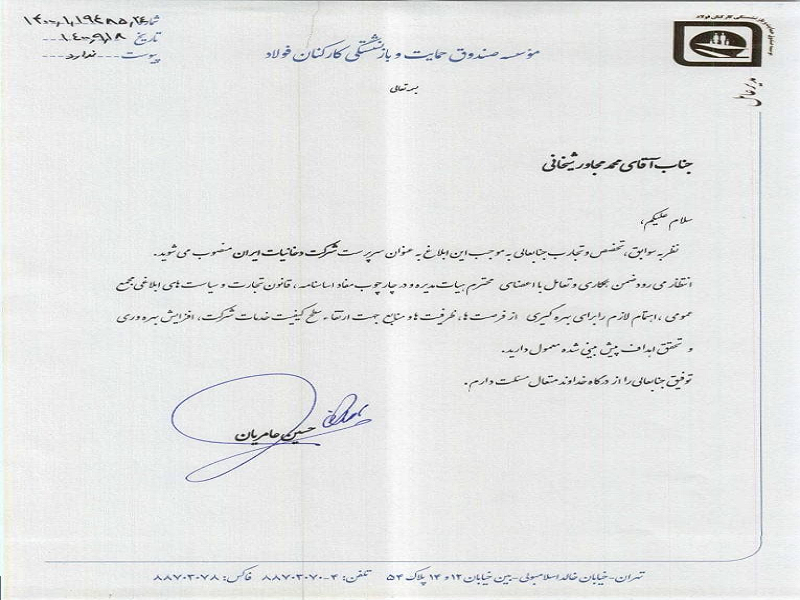 شماره ۱۴۰۰/۱/۱۹۴۸۵/۲۴
تاریخ ۱۴۰۰/۹/۱۸
پیوست ندارد
مؤسسه صندوق حمایت و بازنشستگی کارکنان فولاد
بسمه تعالی
مدیر عامل
جناب آقای محمد مجاور شیخانی
سلام علیکم،
نظر به سوابق، تخصص و تجارب جنابعالی به موجب این ابلاغ به عنوان سرپرست شرکت دخانیات ایران منصوب می شوید.
انتظار می رود ضمن همکاری و تعامل با اعضای محترم هیات مدیره و در چارچوب مفاد اساسنامه، قانون تجارت و سیاست های ابلاغی مجمع
عمومی، اهتمام لازم را برای بهره گیری از فرصت ها، ظرفیت ها و منابع جهت ارتقاء سطح کیفیت خدمات شرکت، افزایش بهره وری
و تحقق اهداف پیش بینی شده معمول دارید.
توفیق جنابعالی را از درگاه خداوند متعال مسئلت دارم.
حسین عامریان
تهران-خیابان خالد اسلامبولی-بین خیابان ۱۲ و ۱۴ پلاک ۵۴ تلفن: ۴-۸۸۷۰۳۰۷۰ فاکس: ۸۸۷۰۳۰۷۸